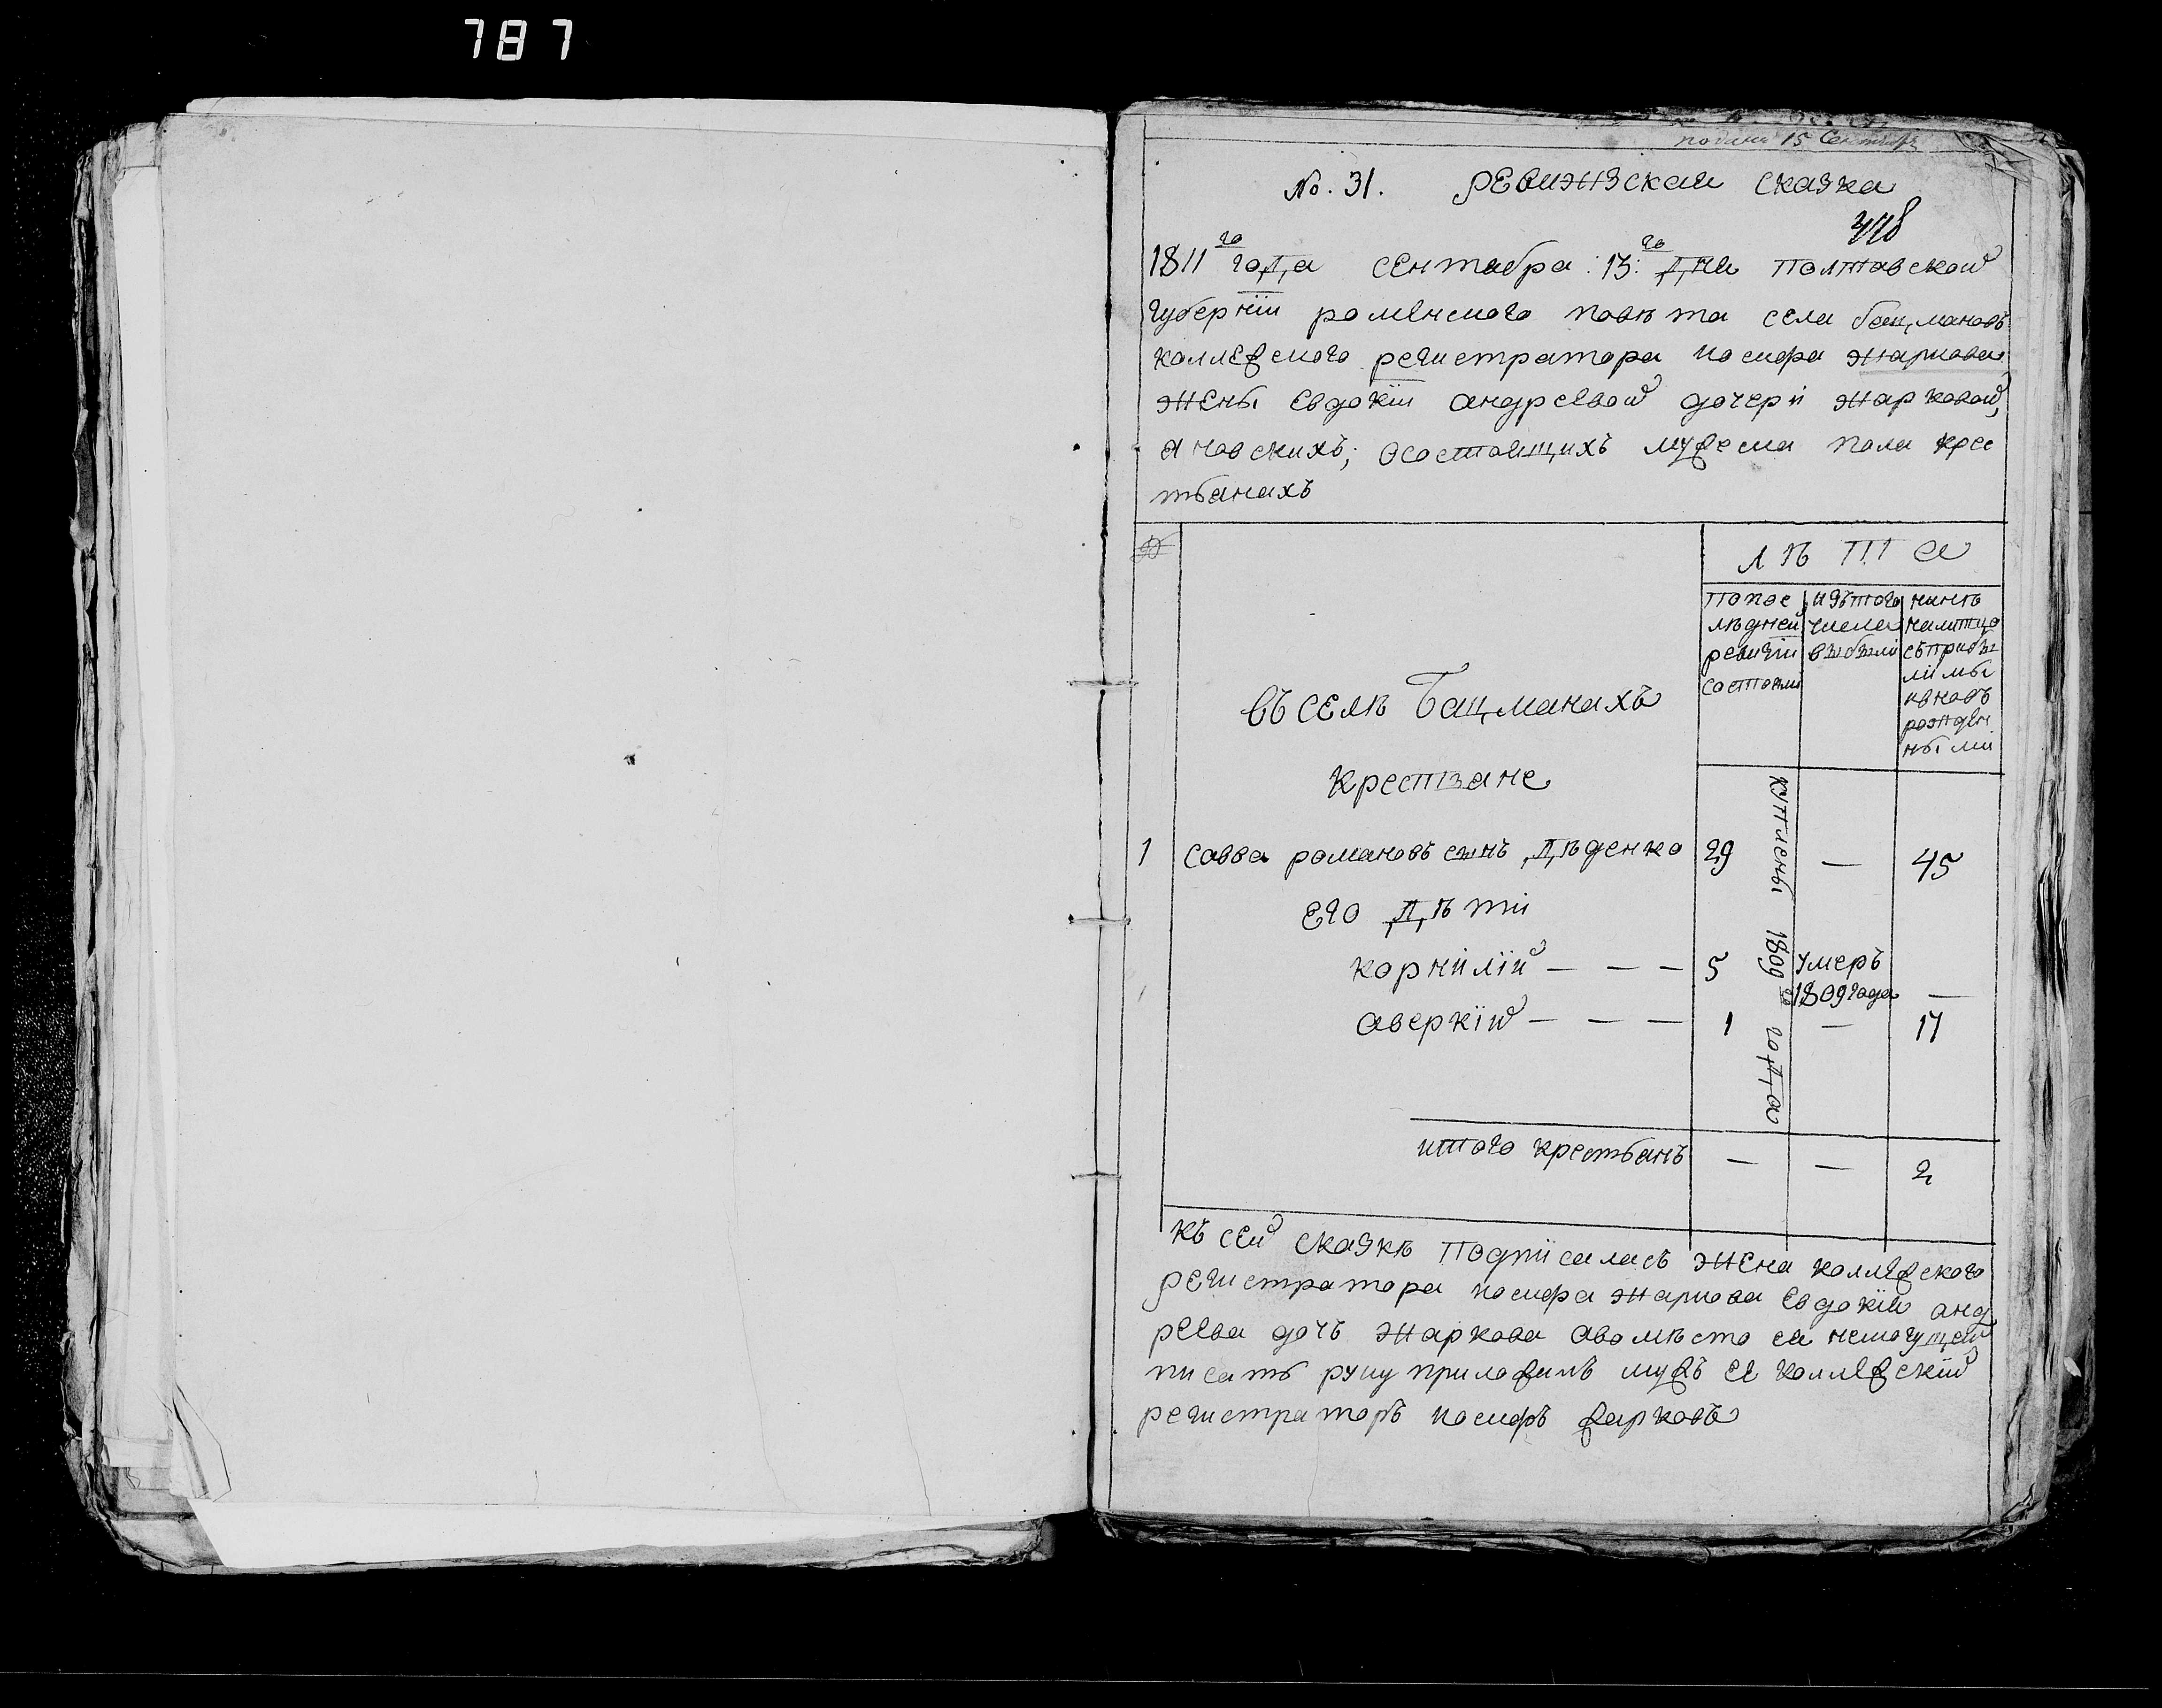 787
подана 15 Сентября
No. 31. РЕвижзская сказка
448
1811го года сентабра :13:го дня полтавской
губернїи роменского повѣта села бацмановъ
коллежского регистратора иосифа жаркова
жены Евдокїи андреевой дочери жарковой,
Ановскихъ; осостоящихъ мужеска пола крес
тьянахъ
лѣта
попос
лѣдней
ревизїи
состояли
изътого
числа
выбыли
нинѣ
налитцо
съприбы
лими
ивновъ
рожден
ными
въ селѣ Бацманахъ
крестьяне
1 савва романовъ сынъ дѣденко 29 — 45
купленны 1809го года
его дѣти
корнилїй — — — 5 умеръ
1809года —
аверкїй — — — 1 — 17
итого крестьянъ — — 2
къ сей сказкѣ подписалась жена коллежского
регистратора иосифа жаркова Евдокїя анд
реева дочъ жаркова авомѣсто ея немогущей
писать руку приложилъ мужъ ее коллежскїй
регистраторъ иосифъ жарковъ